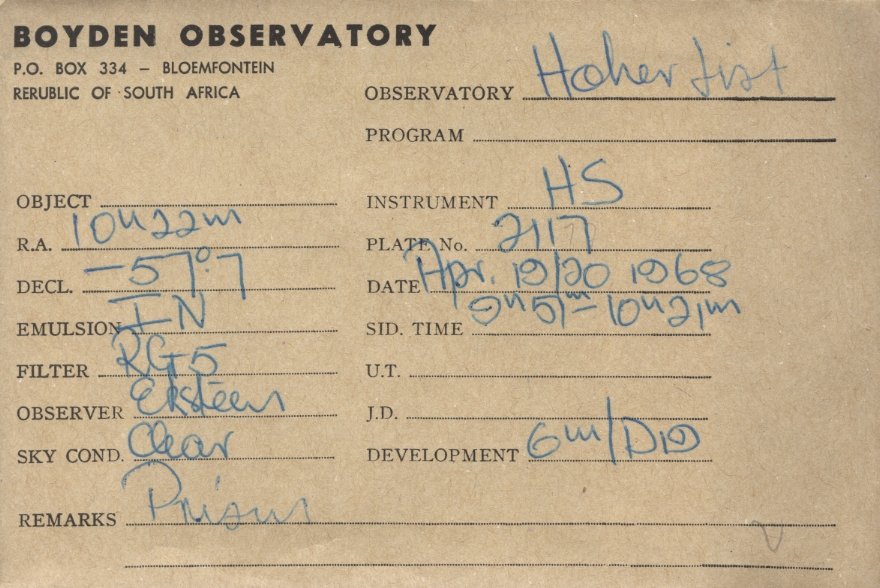 BOYDEN OBSERVATORY
P.O. BOX 334 – BLOEMFONTEIN
RERUBLIC OF SOUTH AFRICA
OBSERVATORY Hoher List
PROGRAM
OBJECT
INSTRUMENT HS
R.A. 10h22m
PLATE No. 2117
DECL. -57°.7
DATE Apr. 19/20 1968
EMULSION I N
SID. TIME 9h51m-10h21m
FILTER RG5
U.T.
OBSERVER Eksteen
J.D.
SKY COND. Clear
DEVELOPMENT 6m/D19
REMARKS Prism